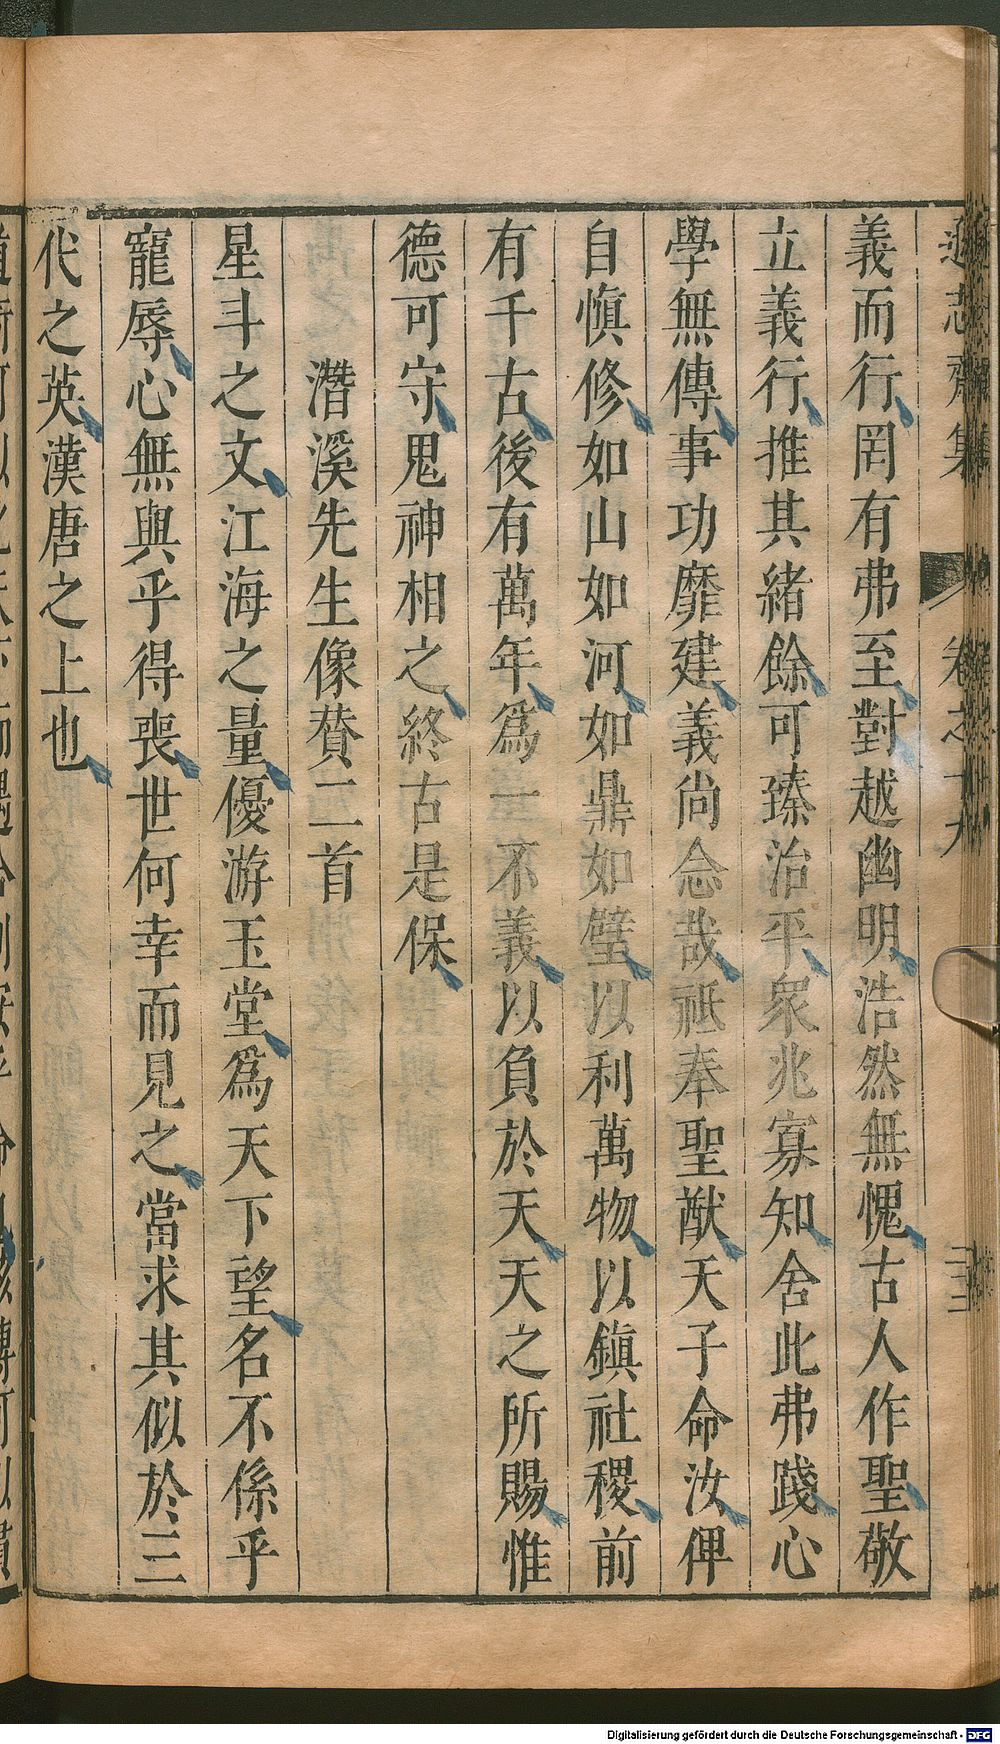 遜志齋集 卷之十九
義而行罔有弗至對越幽明浩然無愧古人作聖敬
立義行推其緒餘可臻治平衆兆寡知舍此弗踐心
學無傳事功靡建義尚念哉祗奉聖猷天子命汝俾
自愼修如山如河如鼎如璧以利萬物以鎮社稷前
有千古後有萬年爲一不義以負於天天之所賜惟
德可守鬼神相之終古是保
潛溪先生像賛二首
星斗之文江海之量優游玉堂爲天下望名不係乎
寵辱心無與乎得喪世何幸而見之當求其似於三
代之英漢唐之上也
Digitalisierung gefördert durch die Deutsche Forschungsgemeinschaft - DFG